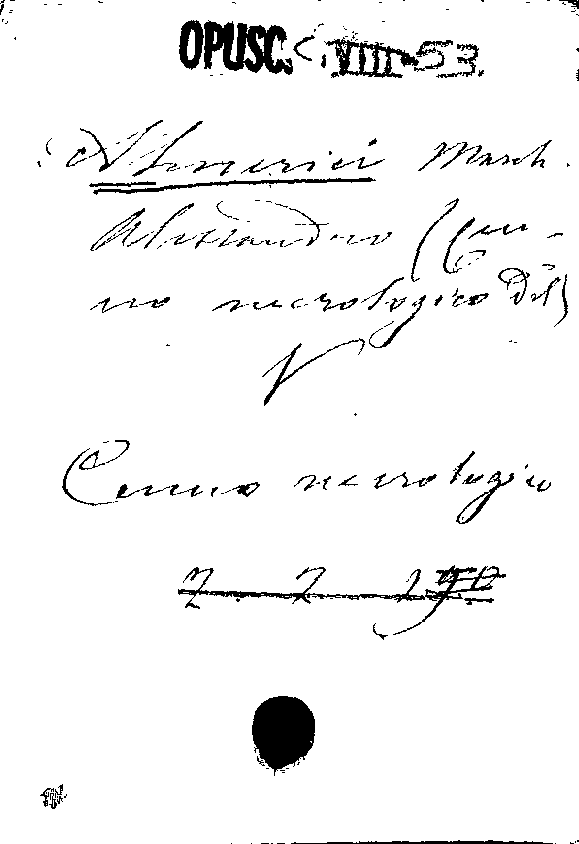 OPUSC. C. VIII-53.
Almerici March.
Alessandro (Cen-
no necrologico del)
V
Cenno necrologico